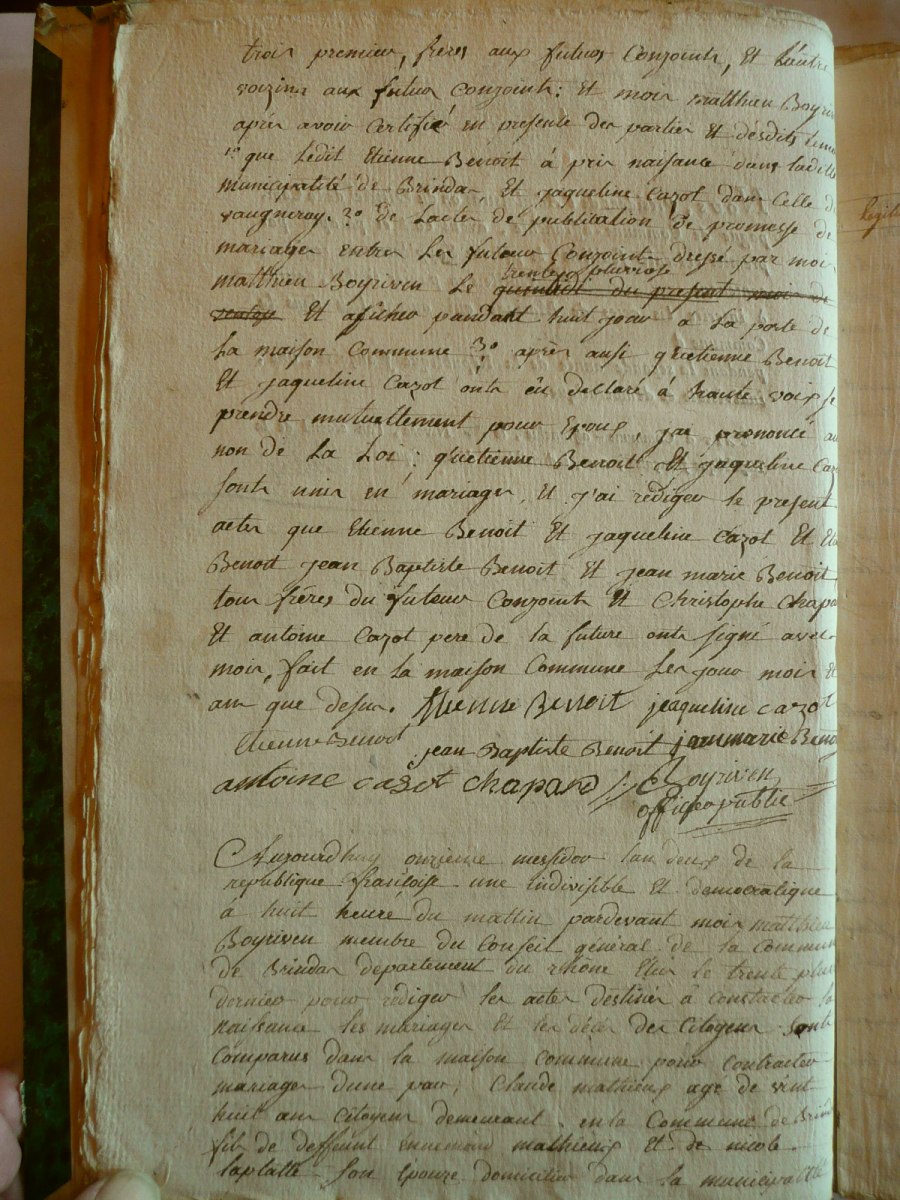 trois premier, frères aux futurs Conjoints, Et l'autre
voizins aux futur Conjoints: Et mois matthieu Boyriv
après avoir Certifié en presente des parties Et desdits temo
1º que ledit Etienne Benoit à pris naisance dans ladit
municipalité de Brindas Et jaqueline Cazot dans Celle de
vaugneray. 2º de Lactes de publication de promesse de
mariages entres Les futeur Conjoints dressé par mois
trente pluviose
matthieu Boyriven Le quintidi du present mois de
Et afficher pandant huit jour a La porte de
La maison Commune 3º après ausi qu'etienne Benoit
Et jaqueline Cazot onts eu declaré à haute voix se
prendre mutuellement pour Epoux, j'ai prononcé au
non de La Loi; qu'etienne Benoit Et jaqueline Caz
sonts unis en mariages, Et j'ai rediger le present
actes que Etienne Benoit Et jaqueline Cazot Et Eti
Benoit jean Baptiste Benoit Et jean marie Benoit
tous frères du futeur Conjoints Et Christophe Chapa
Et antoine Cazot pere de la future onts signé avec
mois, fait en la maison Commune Les jour mois Et
ans que desus. Etienne Benoit jeaqueline cazot
Etienne Benoit jean Baptiste Benoit jean marie Benoi
antoine cazot chapard Boyriven
officier public
Aujourdhuy onzienne messidor lan deux de la
republique francoise une indivisible Et democratique
à huit heure du mattin pardevant mois matthieu
Boyriven membre du Conseil général de la Commun
de Brindas departement du rhône Elus le trente pluv
dernier pour rédiger les actes destinés à constater la
naissance les mariages Et les décès des Citoyens sonts
Comparus dans la maison commune pour Contracter
mariages dune par, Claude mathieux agé de vint
huit ans Citoyen demeurant en la Commune de Brin
fils de deffunt ennemond mathieux Et de nicole
laplatte son Epouze domicilier dans la municipalité